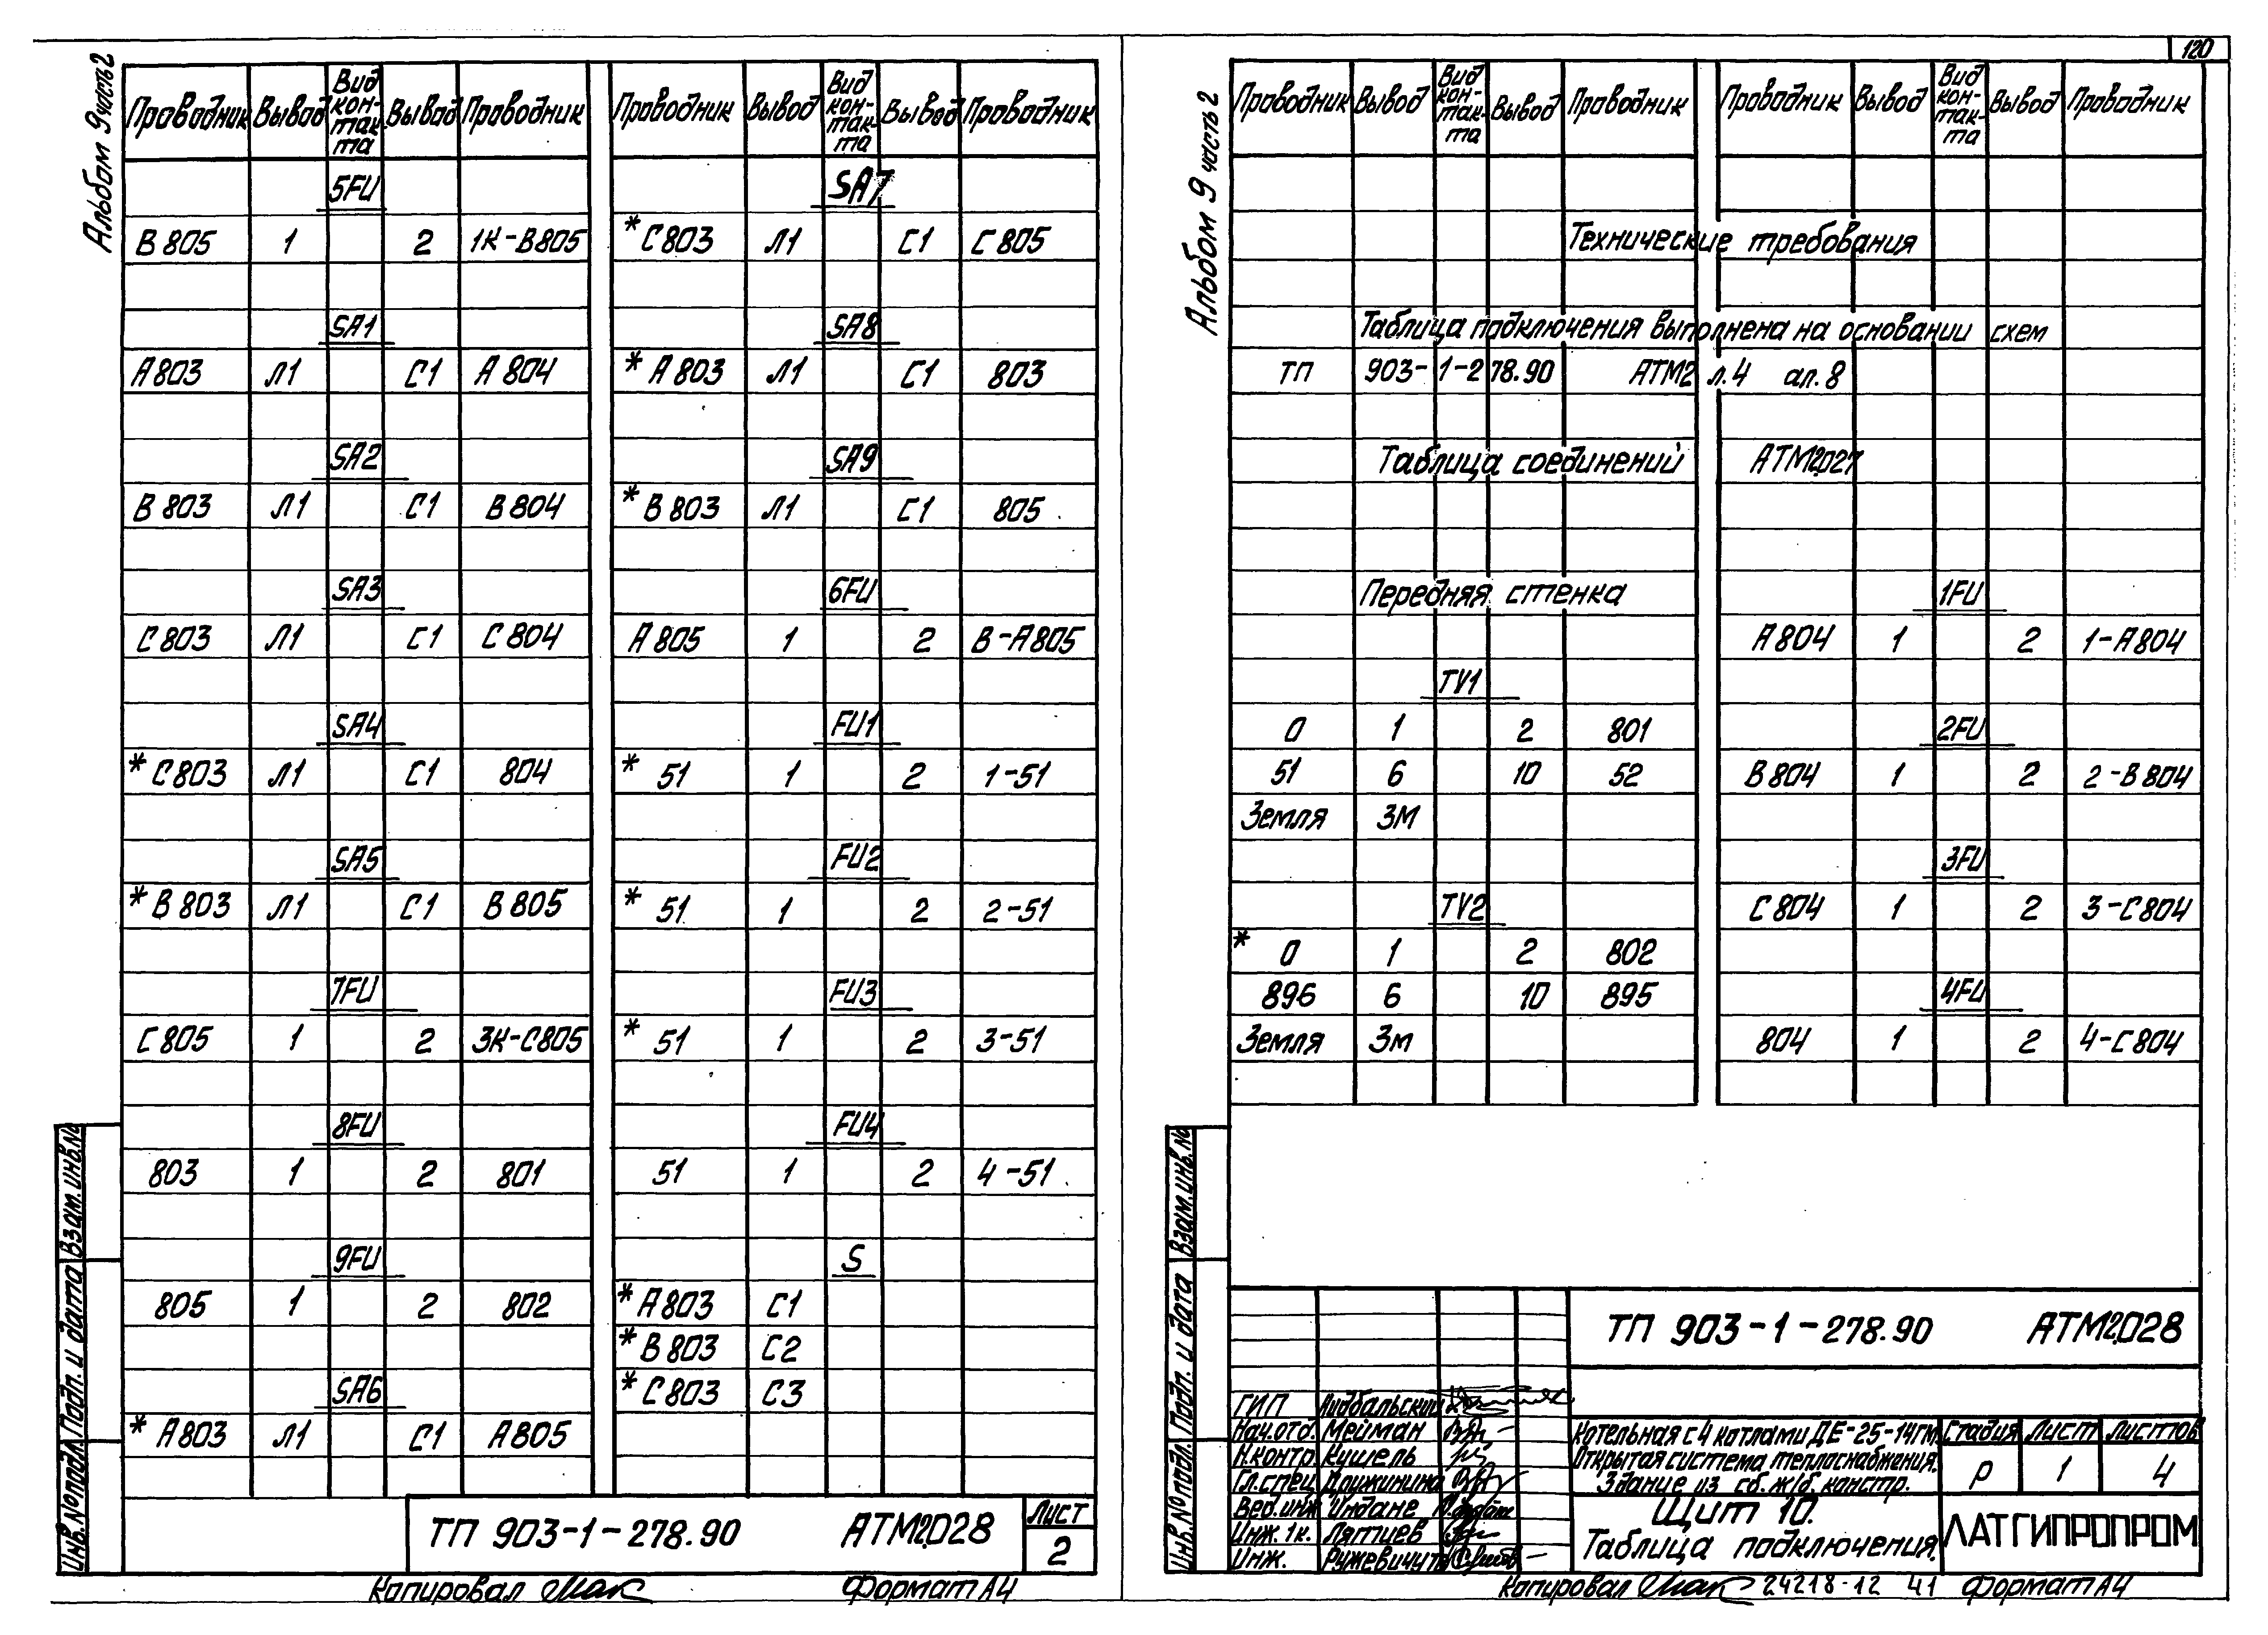 Альбом 9 часть 2
Проводник Вывод Вид кон-так-та Вывод Проводник
5FU
В 805 1 2 1К-В805
SA1
А 803 Л1 С1 А 804
SA2
В 803 Л1 С1 В 804
SA3
С 803 Л1 С1 С 804
SA4
* С 803 Л1 С1 804
SA5
* В 803 Л1 С1 В 805
7FU
С 805 1 2 3К-С805
8FU
803 1 2 801
9FU
805 1 2 802
SA6
* А 803 Л1 С1 А 805
Проводник Вывод Вид кон-так-та Вывод Проводник
SA7
* С 803 Л1 С1 С 805
SA8
* А 803 Л1 С1 803
SA9
* В 803 Л1 С1 805
6FU
А 805 1 2 В-А805
FU1
* 51 1 2 1-51
FU2
* 51 1 2 2-51
FU3
* 51 1 2 3-51
FU4
51 1 2 4-51
S
* А 803 С1
* В 803 С2
* С 803 С3
Инв.№подл. Подп. и дата Взам.инв.№
ТП 903-1-278.90 АТМ2.028
Лист
2
Копировал Формат А4
120
Альбом 9 часть 2
Проводник Вывод Вид кон-так-та Вывод Проводник
Технические требования
Таблица подключения выполнена на основании схем
ТП 903-1-278.90 АТМ2 л.4 ал.8
Таблица соединений АТМ2.027
Передняя стенка
TV1
0 1 2 801
51 6 10 52
Земля ЗМ
TV2
* 0 1 2 802
896 6 10 895
Земля Зм
Проводник Вывод Вид кон-так-та Вывод Проводник
1FU
А 804 1 2 1-А804
2FU
В 804 1 2 2-В 804
3FU
С 804 1 2 3-С804
4FU
804 1 2 4-С804
Инв.№подл. Подп. и дата Взам.инв.№
ТП 903-1-278.90 АТМ2.028
ГИП
Нач.отд. Мейман
Н.контр Кушель
Гл.спец Дружинина
Вед.инж Индане
Инж. 1к. Лятиев
Инж.
Котельная с 4 котлами ДЕ-25-14ГМ.
Открытая система теплоснабжения.
Здание из сб. ж/б. констр.
Стадия Лист Листов
Р 1 4
Щит 10.
Таблица подключения.
ЛАТГИПРОПРОМ
Копировал 24218-12 41 Формат А4